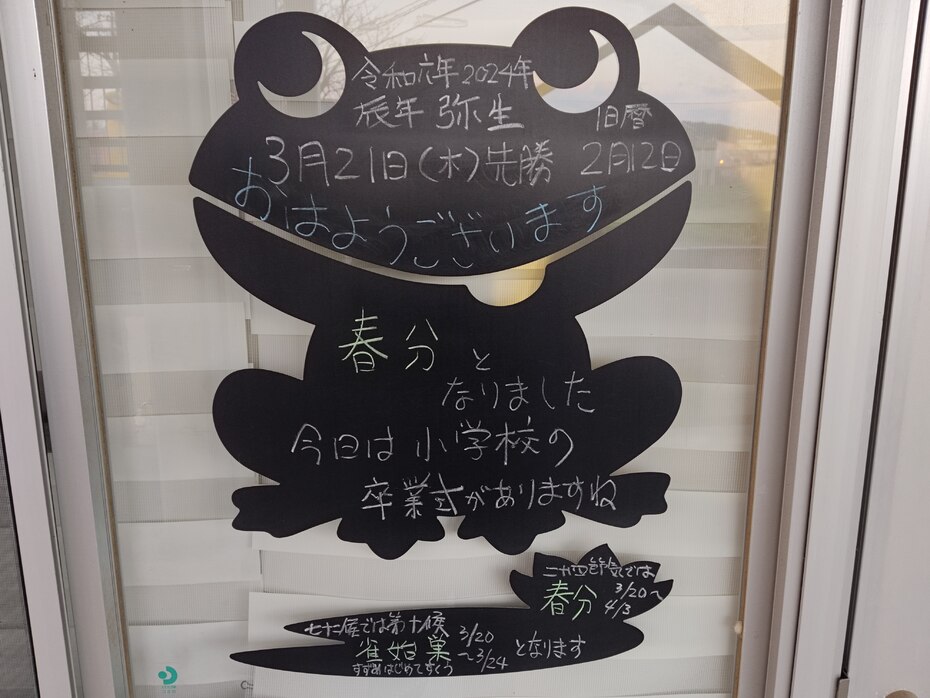 令和六年 2024年
辰年 弥生 旧暦
3月21日(木)先勝 2月12日
おはようございます
春分と
なりました
今日は小学校の
卒業式がありますね
二十四節気では
春分 3/20〜4/3
七十二候では第十候
雀始巣 3/20〜3/24 となります
すずめはじめてすくう